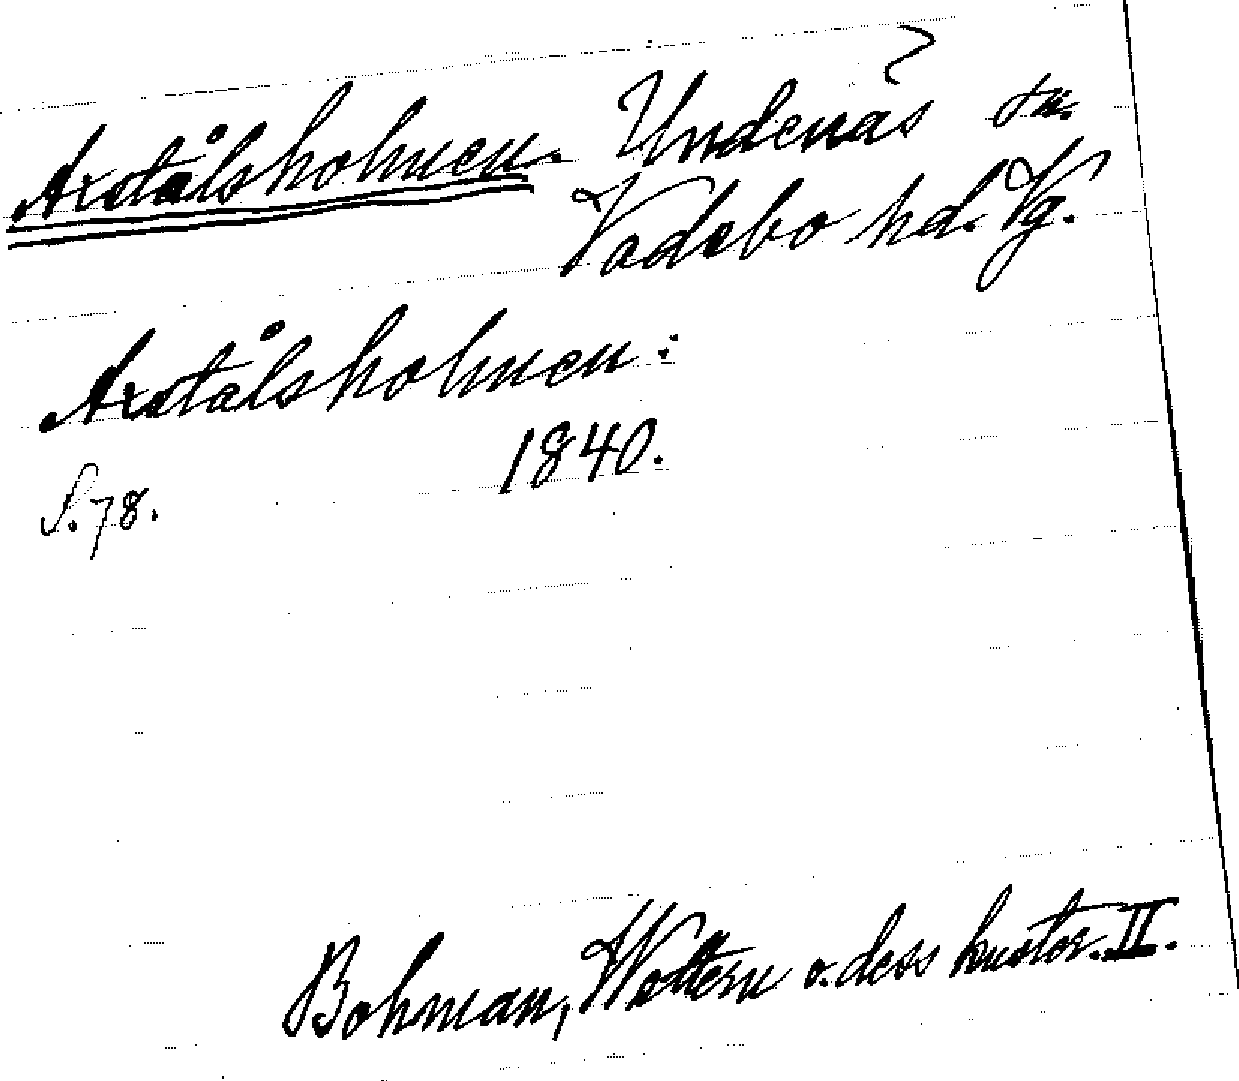 Axstålsholmen. Undenäs sn.
Vadsbo hd. Vg.
Axstålsholmen:
1840.
S. 78.
Bohman, Wettern o. dess kuster. II.